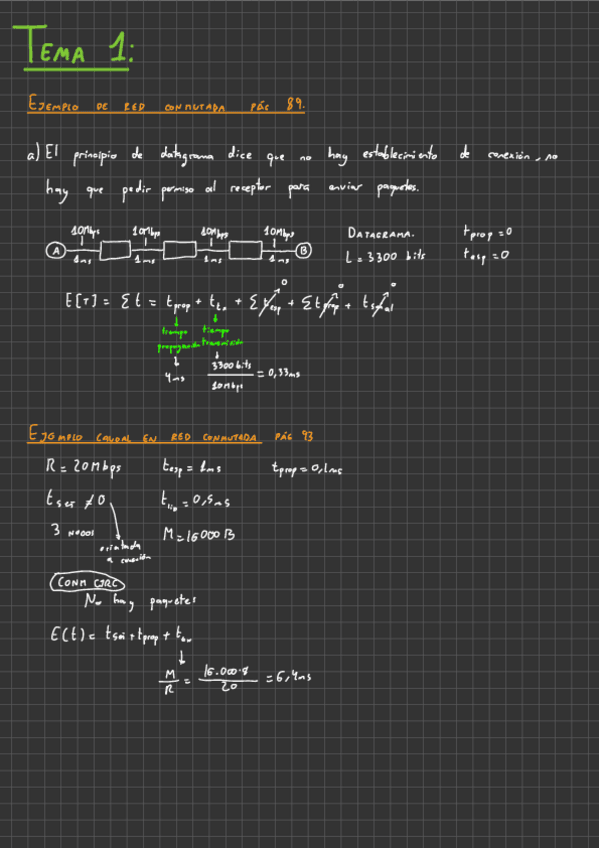 TEMA 1:
EJEMPLO DE RED CONMUTADA PÁG 89.
a) El principio de datagrama dice que no hay establecimiento de conexión, no
hay que pedir permiso al receptor para enviar paquetes.
10Mbps 10Mbps 10Mbps 10Mbps
A B
1ms 1ms 1ms 1ms
DATAGRAMA. tprop=0
L = 3300 bits tesp=0
E[T] = Σt = tprop + tt + Σtesp + Σtprop + tseñal
0 0 0
tiempo propagación tiempo transmisión
4ms 3300 bits / 10Mbps = 0,33ms
EJEMPLO CAUDAL EN RED CONMUTADA PÁG 93
R = 20Mbps tesp = 1ms tprop = 0,1ms
≠0 = 0,5ms
3 NODOS M = 16000B
orientada a conexión
CONM CIRC
No hay paquetes
E(t) = + tprop +
M/R = 16.000·8/20 = 6,4ms